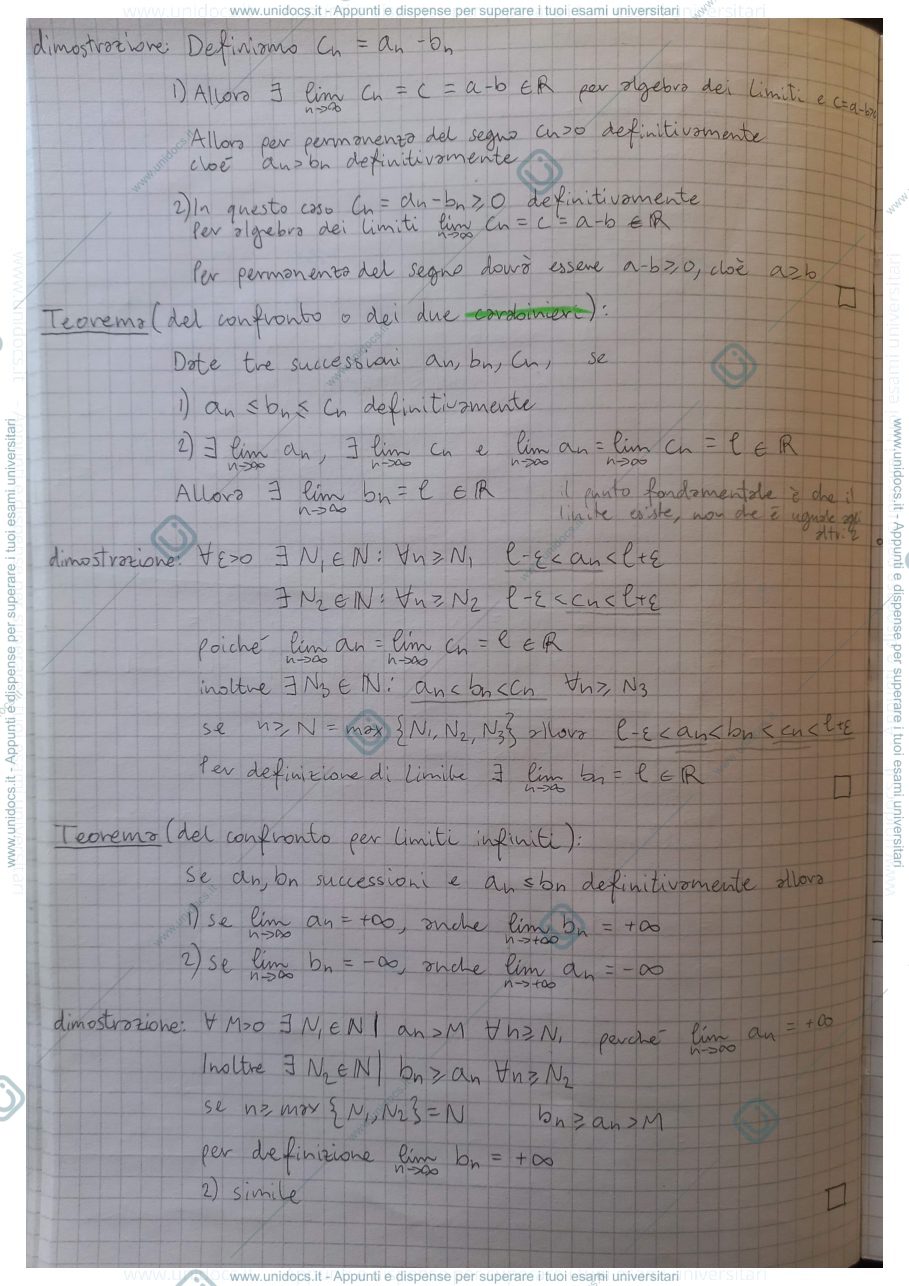 www.unidocs.it - Appunti e dispense per superare i tuoi esami universitari
dimostrazione: Definiamo Cn = an - bn
1) Allora ∃ lim n→∞ Cn = c = a-b ∈ ℝ per algebra dei limiti e c=a-b>0
Allora per permanenza del segno Cn>0 definitivamente
cioè an>bn definitivamente
2) In questo caso Cn = an - bn ≥ 0 definitivamente
Per algebra dei limiti lim n→∞ Cn = c = a-b ∈ ℝ
Per permanenza del segno dovrà essere a-b ≥ 0, cioè a≥b □
Teorema (del confronto o dei due carabinieri):
Date tre successioni an, bn, Cn, se
1) an ≤ bn ≤ Cn definitivamente
2) ∃ lim n→∞ an, ∃ lim n→∞ Cn e lim n→∞ an = lim n→∞ Cn = ℓ ∈ ℝ
Allora ∃ lim n→∞ bn = ℓ ∈ ℝ
il punto fondamentale è che il
limite esiste, non che è uguale agli
altri 2
dimostrazione: ∀ε>0 ∃ N1 ∈ ℕ : ∀n ≥ N1 ℓ-ε < an < ℓ+ε
∃ N2 ∈ ℕ : ∀n ≥ N2 ℓ-ε < cn < ℓ+ε
poiché lim n→∞ an = lim n→∞ cn = ℓ ∈ ℝ
inoltre ∃ N3 ∈ ℕ : an < bn < Cn ∀n ≥ N3
se n ≥ N = max {N1, N2, N3} allora ℓ-ε < an < bn < cn < ℓ+ε
Per definizione di limite ∃ lim n→∞ bn = ℓ ∈ ℝ □
Teorema (del confronto per limiti infiniti):
Se an, bn successioni e an ≤ bn definitivamente allora
1) se lim n→∞ an = +∞, anche lim n→+∞ bn = +∞
2) se lim n→∞ bn = -∞, anche lim n→+∞ an = -∞
dimostrazione: ∀ M>0 ∃ N1 ∈ ℕ | an > M ∀n ≥ N1 perché lim n→∞ an = +∞
Inoltre ∃ N2 ∈ ℕ | bn ≥ an ∀n ≥ N2
se n ≥ max {N1, N2} = N bn ≥ an > M
per definizione lim n→∞ bn = +∞
2) simile □
www.unidocs.it - Appunti e dispense per superare i tuoi esami universitari
www.unidocs.it - Appunti e dispense per superare i tuoi esami universitari
www.unidocs.it - Appunti e dispense per superare i tuoi esami universitari